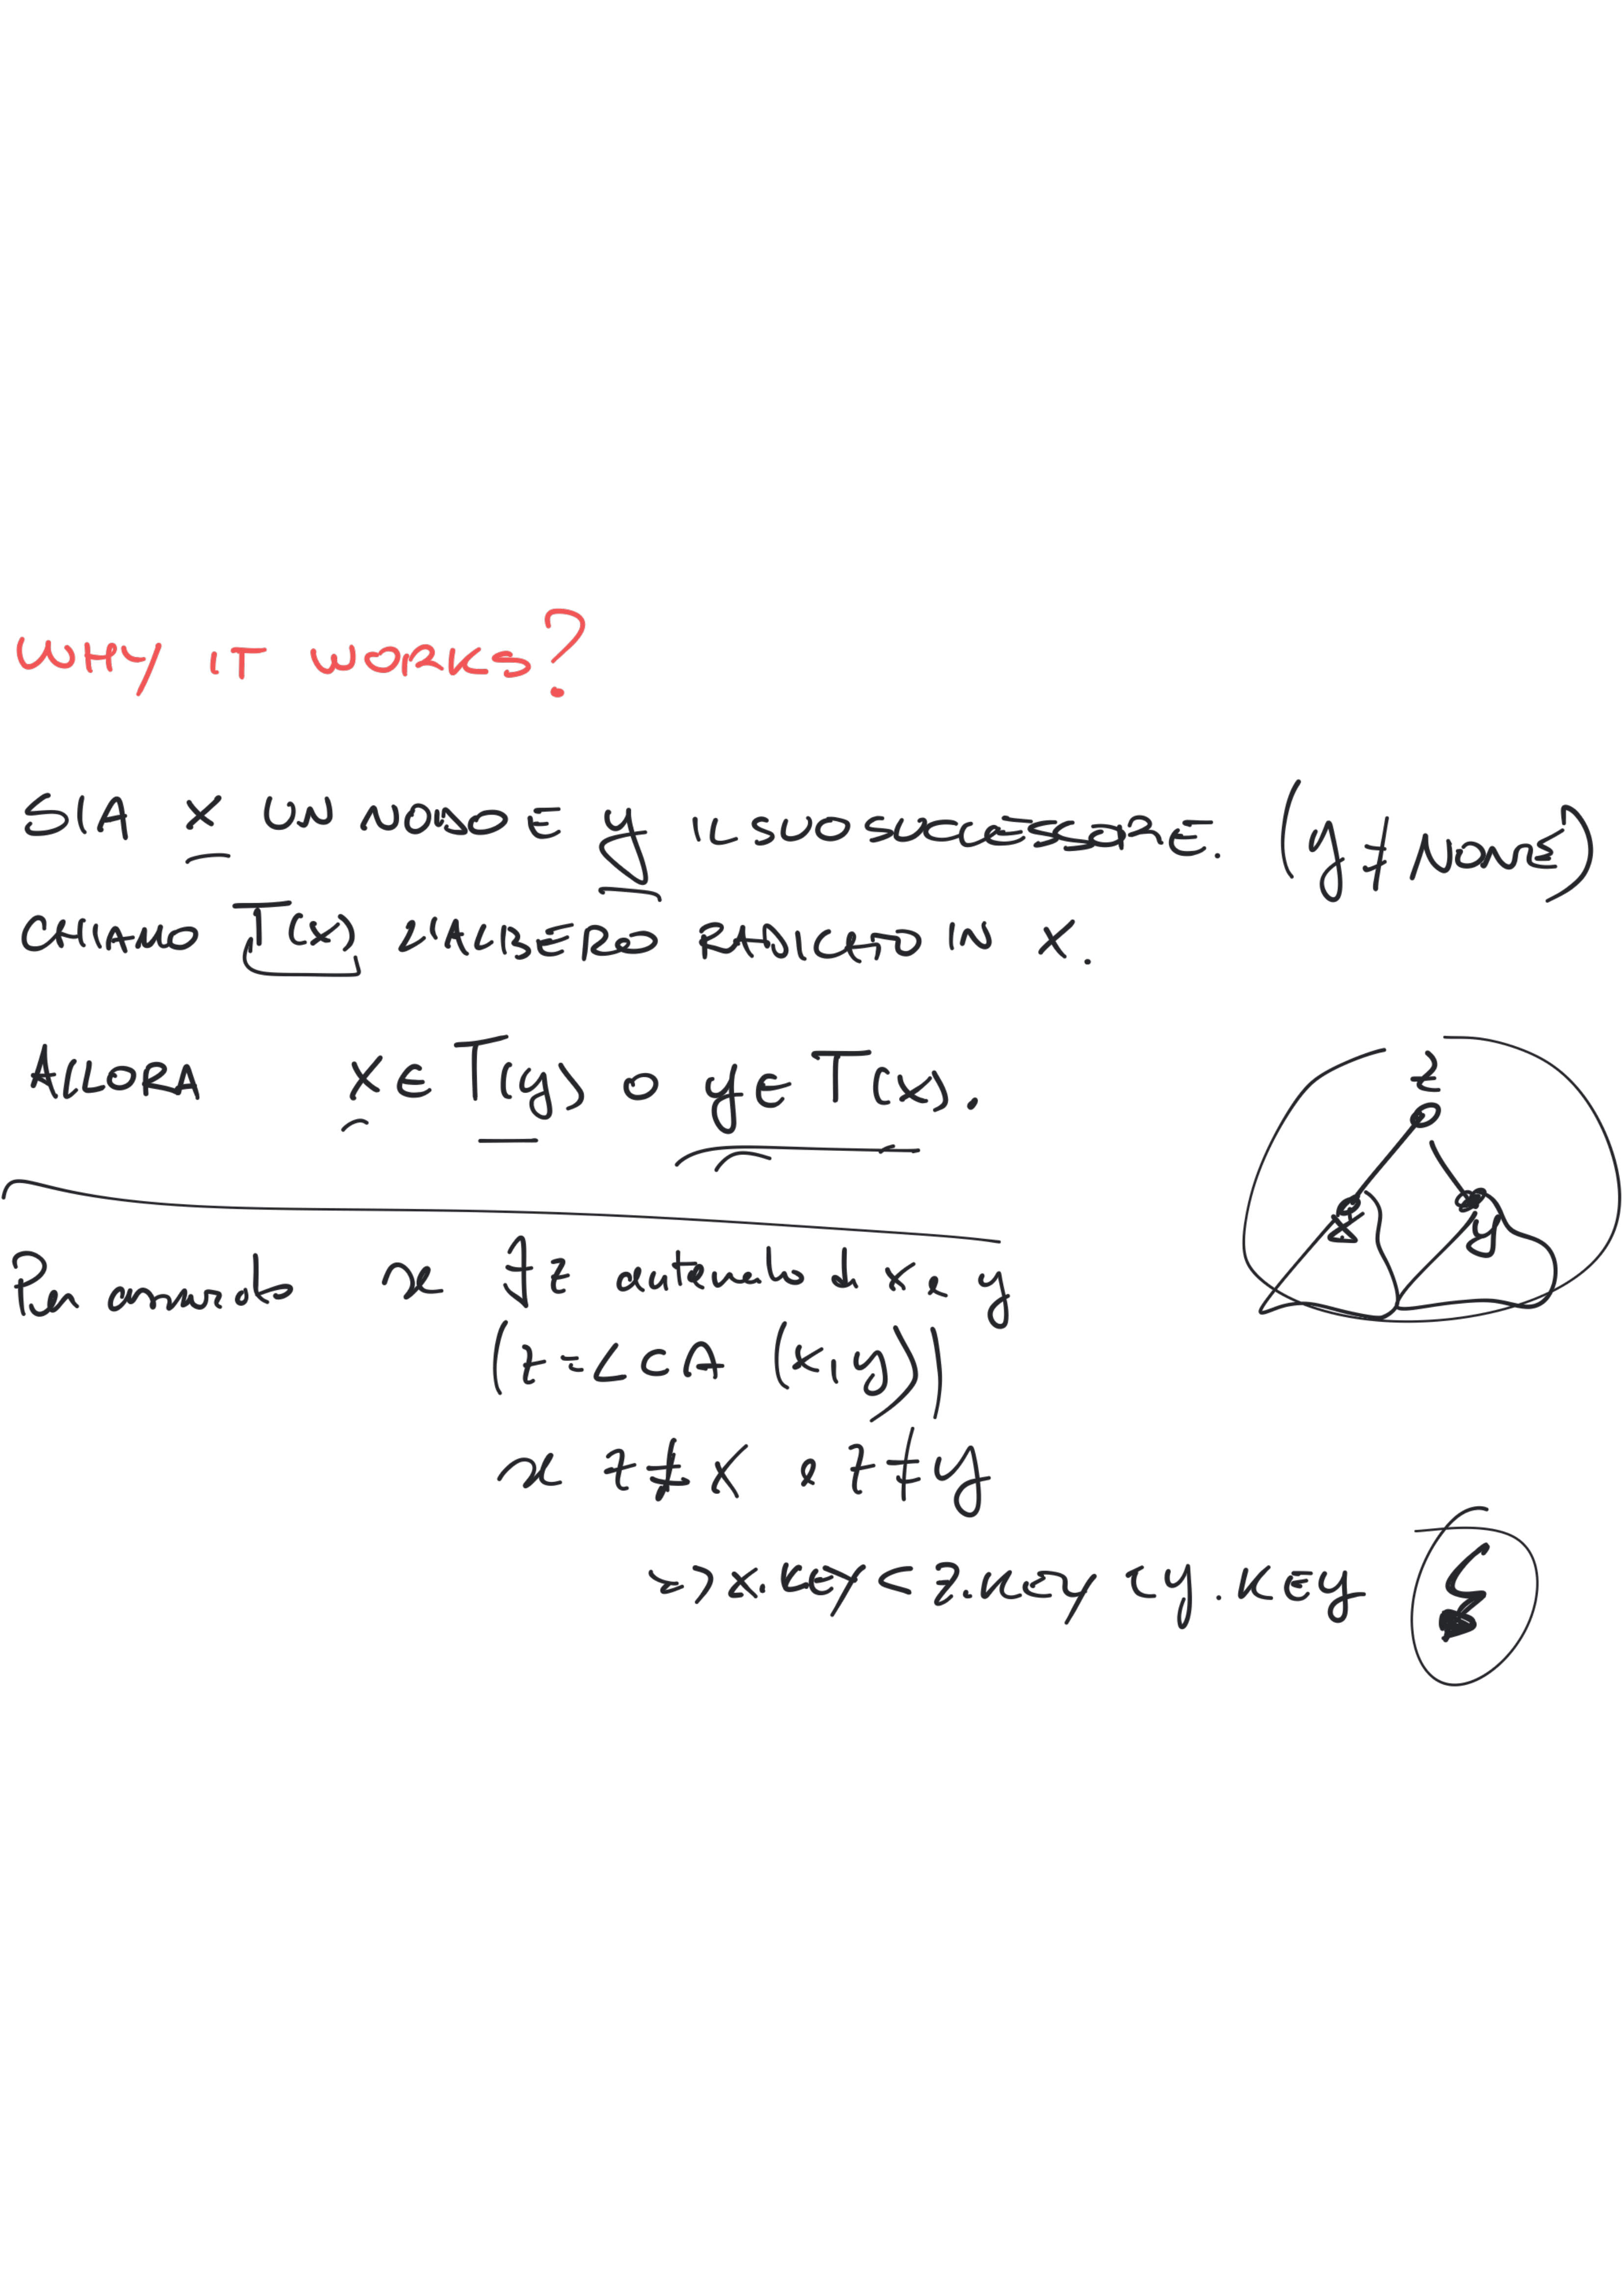 WHY IT WORKS?
SIA X UN NODO E y IL SUO SUCCESSORE. (y ≠ NONE)
CHIAMO T(x) L'ALBERO RADICATO IN X.
ALLORA x ∈ T(y) o y ∈ T(x).
z
x
y
Remark se z è antenato di x e y
(z = LCA (x, y))
se z ≠ x e z ≠ y
~> x.KEY < z.KEY < y.KEY